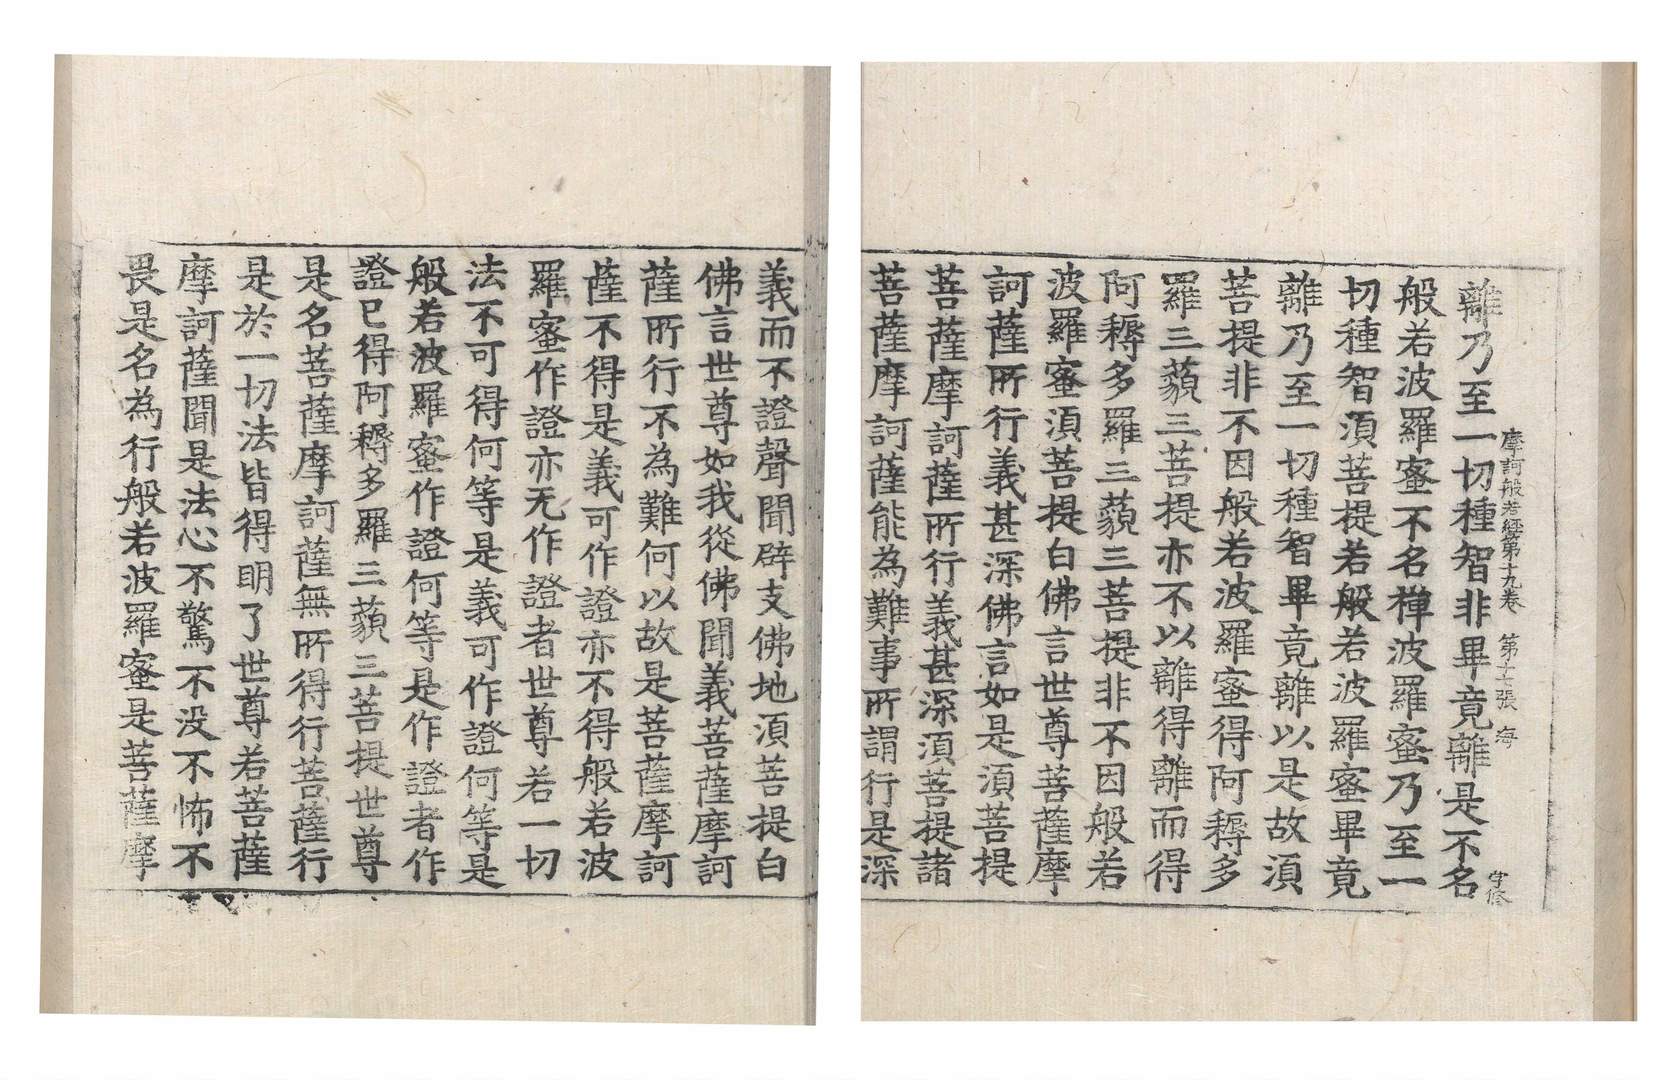 摩訶般若經第十九卷 第十七張 海
離乃至一切種智非畢竟離是不名
般若波羅蜜不名禪波羅蜜乃至一
切種智湏菩提若般若波羅蜜畢竟
離乃至一切種智畢竟離以是故湏
菩提非不因般若波羅蜜得阿耨多
羅三藐三菩提亦不以離得離而得
阿耨多羅三藐三菩提非不因般若
波羅蜜湏菩提白佛言世尊菩薩摩
訶薩所行義甚深佛言如是湏菩提
菩薩摩訶薩所行義甚深湏菩提諸
菩薩摩訶薩能為難事所謂行是深
義而不證聲聞辟支佛地湏菩提白
佛言世尊如我從佛聞義菩薩摩訶
薩所行不為難何以故是菩薩摩訶
薩不得是義可作證亦不得般若波
羅蜜作證亦无作證者世尊若一切
法不可得何等是義可作證何等是
般若波羅蜜作證何等是作證者作
證已得阿耨多羅三藐三菩提世尊
是名菩薩摩訶薩無所得行菩薩行
是於一切法皆得明了世尊若菩薩
摩訶薩聞是法心不驚不没不怖不
畏是名為行般若波羅蜜是菩薩摩